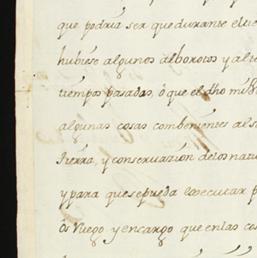 que podria ser que durante el tie
hubiese algunos alborotos y alte
tiempos pasados, o que el dho mis
algunas cosas combenientes al s
tierra, y conservazion de los natu
y para que se pueda executar p
Os Ruego y encargo que en las cos